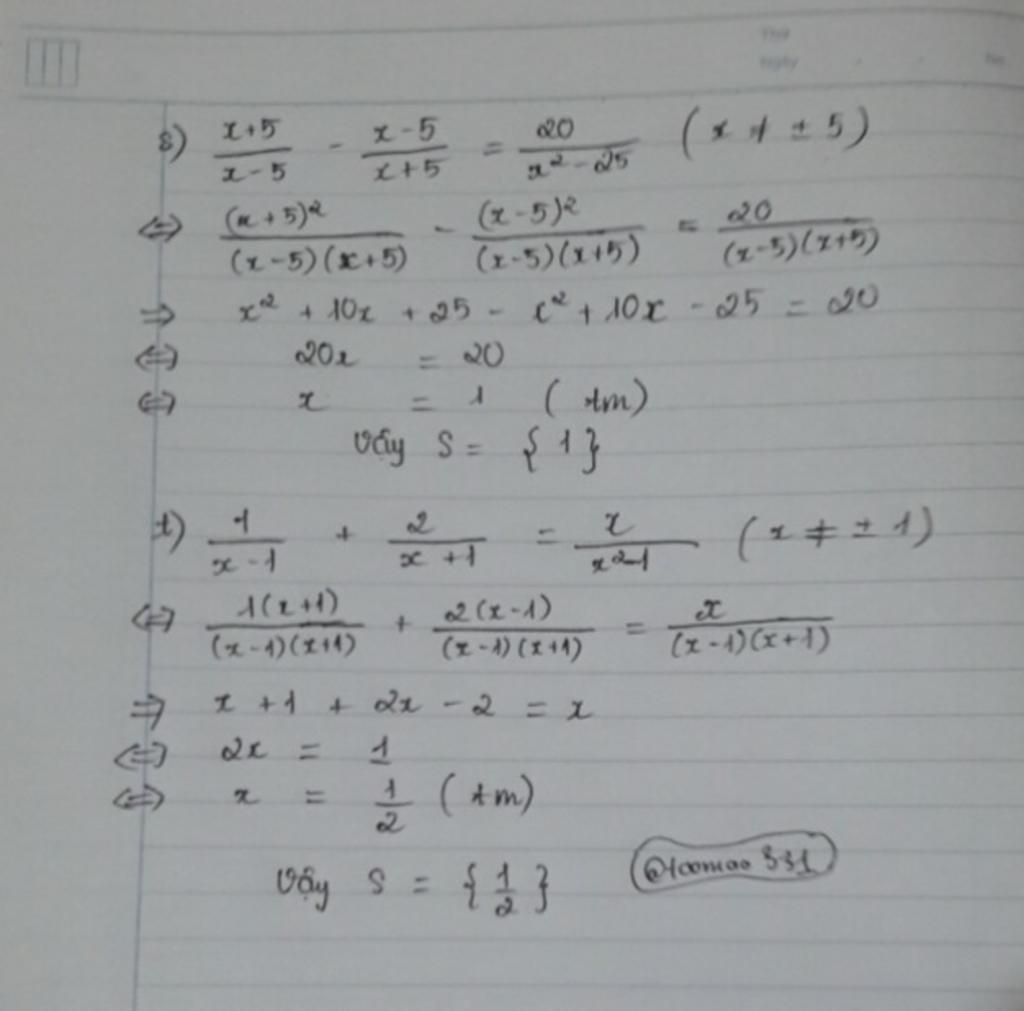 Thứ
Ngày
No
s) \frac{x+5}{x-5} - \frac{x-5}{x+5} = \frac{20}{x^2-25} (x ≠ ± 5)
⇔ \frac{(x+5)^2}{(x-5)(x+5)} - \frac{(x-5)^2}{(x-5)(x+5)} = \frac{20}{(x-5)(x+5)}
⇒ x^2 + 10x + 25 - x^2 + 10x - 25 = 20
⇔ 20x = 20
⇔ x = 1 (tm)
Vậy S = {1}
t) \frac{1}{x-1} + \frac{2}{x+1} = \frac{x}{x^2-1} (x ≠ ± 1)
⇔ \frac{1(x+1)}{(x-1)(x+1)} + \frac{2(x-1)}{(x-1)(x+1)} = \frac{x}{(x-1)(x+1)}
⇒ x + 1 + 2x - 2 = x
⇔ 2x = 1
⇔ x = \frac{1}{2} (tm)
Vậy S = {\frac{1}{2}}